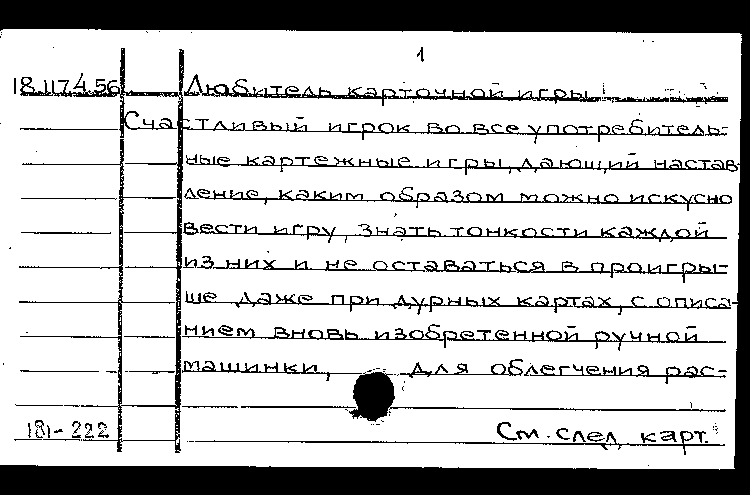 1
18.117.4.56 Любитель карточной игры.
Счастливый игрок во все употребитель-
ные картежные игры, дающий настав-
ление, каким образом можно искусно
вести игру, знать тонкости каждой
из них и не оставаться в проигры-
ше даже при дурных картах, с описа-
нием вновь изобретенной ручной
машинки, для облегчения рас-
181-222 См. след. карт.